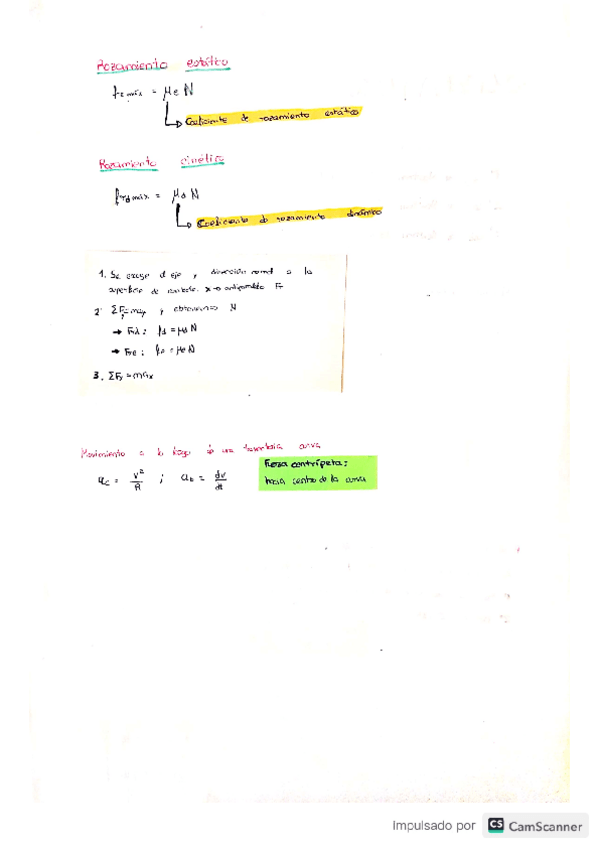 Rozamiento estático
fe máx = μe N
Coeficiente de rozamiento estático
Rozamiento cinético
frd máx = μd N
Coeficiente de rozamiento dinámico
1. Se escoge el eje y dirección normal a la
superficie de contacto. x → Fr
2. ΣFy = may y obtenemos N
→ Frd: fd = μd N
→ Fre: fe = μe N
3. ΣFx = max
Movimiento a lo largo de una trayectoria curva
Fuerza centrípeta:
ac = v²/R ; at = dv/dt
hacia centro de la curva
Impulsado por CS CamScanner